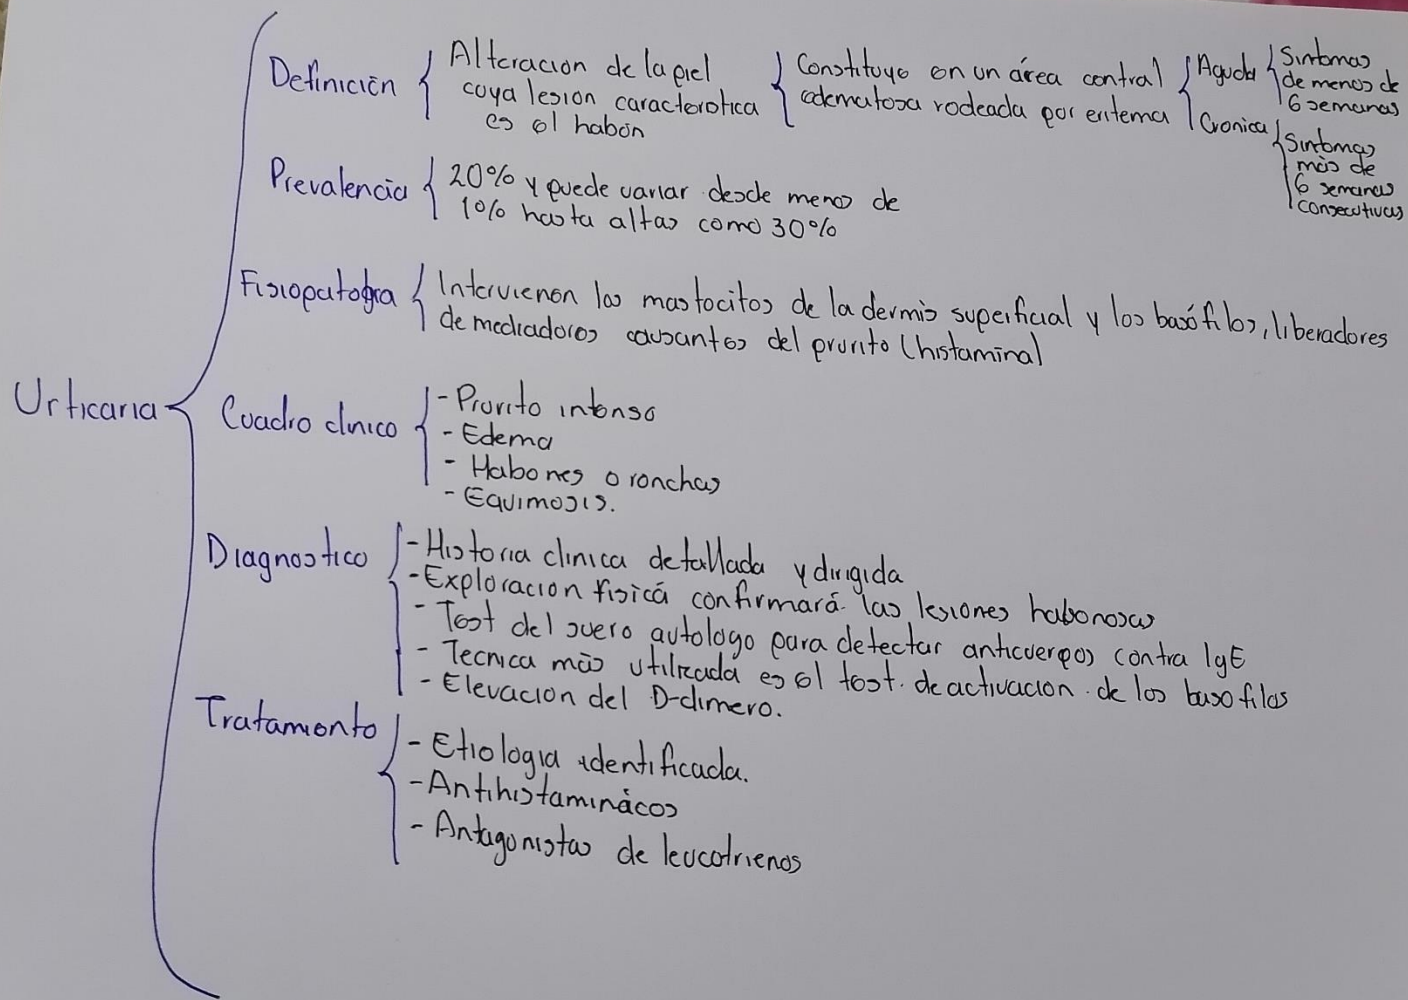 Urticaria
Definición
Alteracion de la piel
cuya lesion caracterotica
es el habón
Constituye en un área central
edematosa rodeada por eritema
Aguda
Sintomas
de menos de
6 semanas
Cronica
Sintomas
más de
6 semanas
consecutivas
Prevalencia
20% y puede variar desde menos de
1% hasta altas como 30%
Fisiopatogia
Intervienen los mastocitos de la dermis superficial y los basófilos, liberadores
de mediadores causantes del prurito (histamina)
Cuadro clinico
- Prurito intenso
- Edema
- Habones o ronchas
- Equimosis.
Diagnostico
- Historia clinica detallada y dirigida
- Exploracion fisicá confirmará las lesiones habonosas
- Test del suero autologo para detectar anticuerpos contra IgE
- Tecnica más utilizada es el test. de activacion de los basofilos
- Elevacion del D-dimero.
Tratamiento
- Etiologia identificada.
- Antihistaminácos
- Antagonistas de leucotrienos